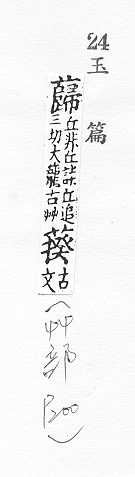 24
玉篇
蘬丘非丘誄丘追
三切大蘢古艸
古文
(艸部 P200)